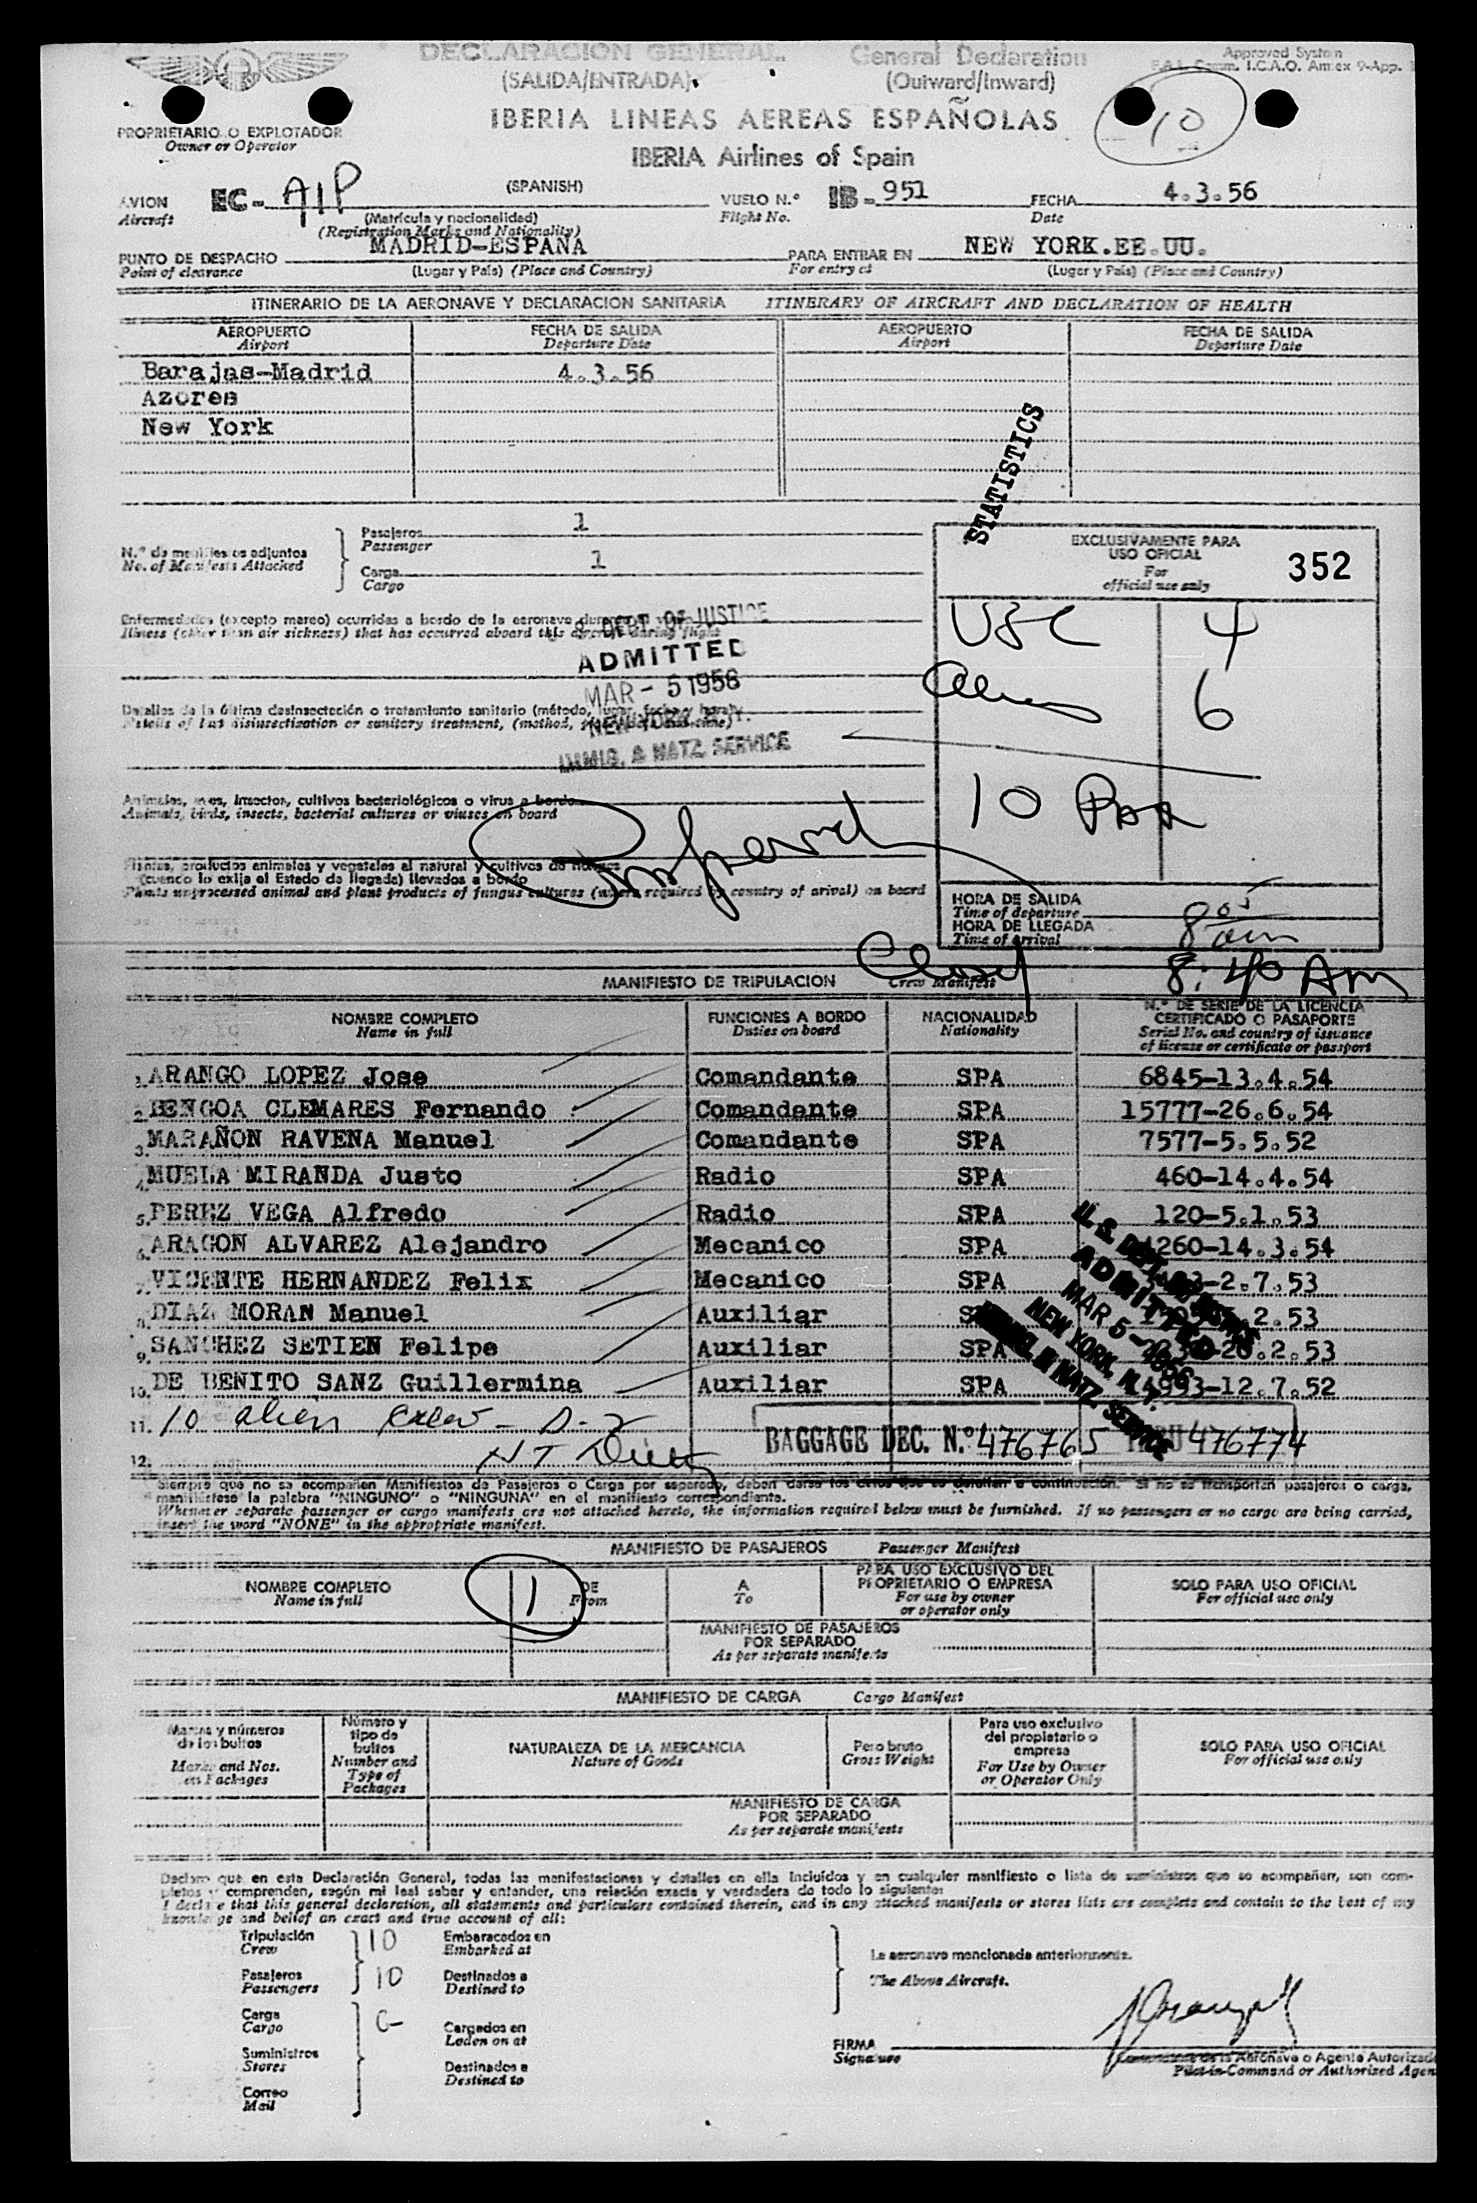 DECLARACION GENERAL General Declaration
Approved System
F.A.L. Comm. I.C.A.O. Annex 9-App. 1
(SALIDA/ENTRADA) (Outward/Inward)
IBERIA LINEAS AEREAS ESPAÑOLAS
10
PROPRIETARIO O EXPLOTADOR
Owner or Operator
IBERIA Airlines of Spain
AVION EC- AIP (SPANISH) VUELO N.º IB- 951 FECHA 4.3.56
Aircraft (Matrícula y nacionalidad) Flight No. Date
(Registration Marks and Nationality)
PUNTO DE DESPACHO MADRID-ESPAÑA PARA ENTRAR EN NEW YORK.EE.UU.
Point of clearance (Lugar y País) (Place and Country) For entry at (Lugar y País) (Place and Country)
ITINERARIO DE LA AERONAVE Y DECLARACION SANITARIA ITINERARY OF AIRCRAFT AND DECLARATION OF HEALTH
AEROPUERTO FECHA DE SALIDA AEROPUERTO FECHA DE SALIDA
Airport Departure Date Airport Departure Date
Barajas-Madrid 4.3.56
Azores
New York
STATISTICS
N.º de manifiestos adjuntos
No. of Manifests Attached
Pasajeros 1
Passenger
Carga 1
Cargo
EXCLUSIVAMENTE PARA
USO OFICIAL
For
official use only
352
USC 4
Aliens 6
10 Pax
Enfermedades (excepto mareo) ocurridas a bordo de la aeronave durante el vuelo
Illness (other than air sickness) that has occurred aboard this aircraft during flight
DEPT. OF JUSTICE
ADMITTED
MAR - 5 1956
NEW YORK, N.Y.
IMMIG. & NATZ. SERVICE
Detalles de la última desinsectación o tratamiento sanitario (método, lugar, fecha y hora)
Details of last disinsectisation or sanitary treatment, (method, place, date and time)
Animales, aves, insectos, cultivos bacteriológicos o virus a bordo
Animals, birds, insects, bacterial cultures or viuses on board
Plantas, productos animales y vegetales al natural y cultivos de hongos
(cuando lo exija el Estado de llegada) llevados a bordo
Plants unprocessed animal and plant products of fungus cultures (where required by country of arival) on board
HORA DE SALIDA
Time of departure
HORA DE LLEGADA
Time of arrival
805 am
8:40 Am
MANIFIESTO DE TRIPULACION Crew Manifest
NOMBRE COMPLETO FUNCIONES A BORDO NACIONALIDAD N.º DE SERIE DE LA LICENCIA
Name in full Duties on board Nationality CERTIFICADO O PASAPORTE
Serial No. and country of issuance
of license or certificate or passport
1. ARANGO LOPEZ Jose Comandante SPA 6845-13.4.54
2. BENGOA CLEMARES Fernando Comandante SPA 15777-26.6.54
3. MARAÑON RAVENA Manuel Comandante SPA 7577-5.5.52
4. MUELA MIRANDA Justo Radio SPA 460-14.4.54
5. PEREZ VEGA Alfredo Radio SPA 120-5.1.53
6. ARAGON ALVAREZ Alejandro Mecanico SPA 1260-14.3.54
7. VICENTE HERNANDEZ Felix Mecanico SPA -2.7.53
8. DIAZ MORAN Manuel Auxiliar 2.53
9. SANCHEZ SETIEN Felipe Auxiliar SPA .2.53
10. DE BENITO SANZ Guillermina Auxiliar SPA 4993-12.7.52
11. 10 alien crew - D-2
12.
U.S. DEPT. OF JUSTICE
ADMITTED
MAR 5-1956
NEW YORK, N.Y.
IMMIG. & NATZ. SERVICE
BAGGAGE DEC. N.º 476765 THRU 476774
Siempre que no se acompañen Manifiestos de Pasajeros o Carga por separado, deben darse los datos que se detallan a continuación. Si no se transportan pasajeros o carga,
manifiéstese la palabra "NINGUNO" o "NINGUNA" en el manifiesto correspondiente.
Whenever separate passenger or cargo manifests are not attached hereto, the information required below must be furnished. If no passengers or no cargo are being carried,
insert the word "NONE" in the appropriate manifest.
MANIFIESTO DE PASAJEROS Passenger Manifest
NOMBRE COMPLETO DE A PARA USO EXCLUSIVO DEL SOLO PARA USO OFICIAL
Name in full From To PROPIETARIO O EMPRESA For official use only
For use by owner
or operator only
1
MANIFIESTO DE PASAJEROS
POR SEPARADO
As per separate manifests
MANIFIESTO DE CARGA Cargo Manifest
Marcas y números
de los bultos
Marks and Nos.
on Packages
Número y
tipo de
bultos
Number and
Type of
Packages
NATURALEZA DE LA MERCANCIA
Nature of Goods
Peso bruto
Gross Weight
Para uso exclusivo
del propietario o
empresa
For Use by Owner
or Operator Only
SOLO PARA USO OFICIAL
For official use only
MANIFIESTO DE CARGA
POR SEPARADO
As per separate manifests
Declaro que en esta Declaración General, todas las manifestaciones y detalles en ella incluídos y en cualquier manifiesto o lista de suministros que se acompañen, son com-
pletos y comprenden, según mi leal saber y entender, una relación exacta y verdadera de todo lo siguiente:
I declare that this general declaration, all statements and particulars contained therein, and in any attached manifests or stores lists are complete and contain to the best of my
knowledge and belief an exact and true account of all:
Tripulación 10 Embaracados en
Crew Embarked at
Pasajeros 10 Destinados a
Passengers Destined to
La aeronave mencionada anteriormente.
The Above Aircraft.
Carga Cargados en
Cargo Laden on at
Suministros
Stores
Destinados a
Destined to
Correo
Mail
FIRMA
Signature
Comandante de la Aeronave o Agente Autorizado
Pilot-in-Command or Authorized Agen